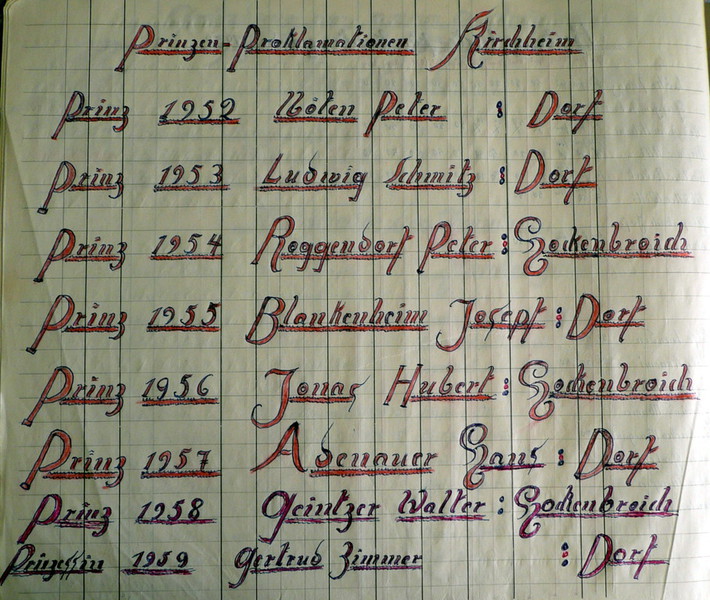 Prinzen-Proklamationen Kirchheim
Prinz 1952 Nöten Peter : Dorf
Prinz 1953 Ludwig Schmitz : Dorf
Prinz 1954 Roggendorf Peter : Hockenbroich
Prinz 1955 Blankenheim Josepf : Dorf
Prinz 1956 Jonas Hubert : Hockenbroich
Prinz 1957 Adenauer Hans : Dorf
Prinz 1958 Geintzer Walter : Hockenbroich
Prinzessin 1959 Gertrud Zimmer : Dorf